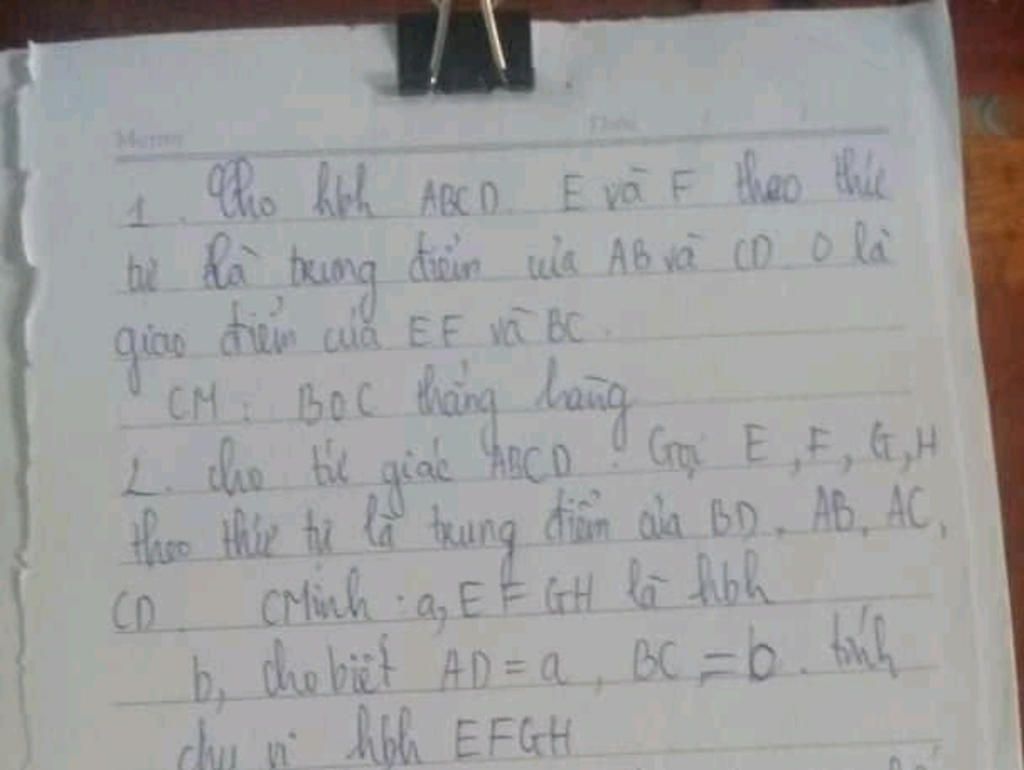 Memo
Date
1. Cho hbh ABCD E và F theo thứ
tự là trung điểm của AB và CD O là
giao điểm của EF và BC.
CM: BOC thẳng hàng
2. cho tứ giác ABCD. Gọi E, F, G, H
theo thứ tự là trung điểm của BD, AB, AC,
CD. CMinh: a, EFGH là hbh
b, cho biết AD = a, BC = b. tính
chu vi hbh EFGH